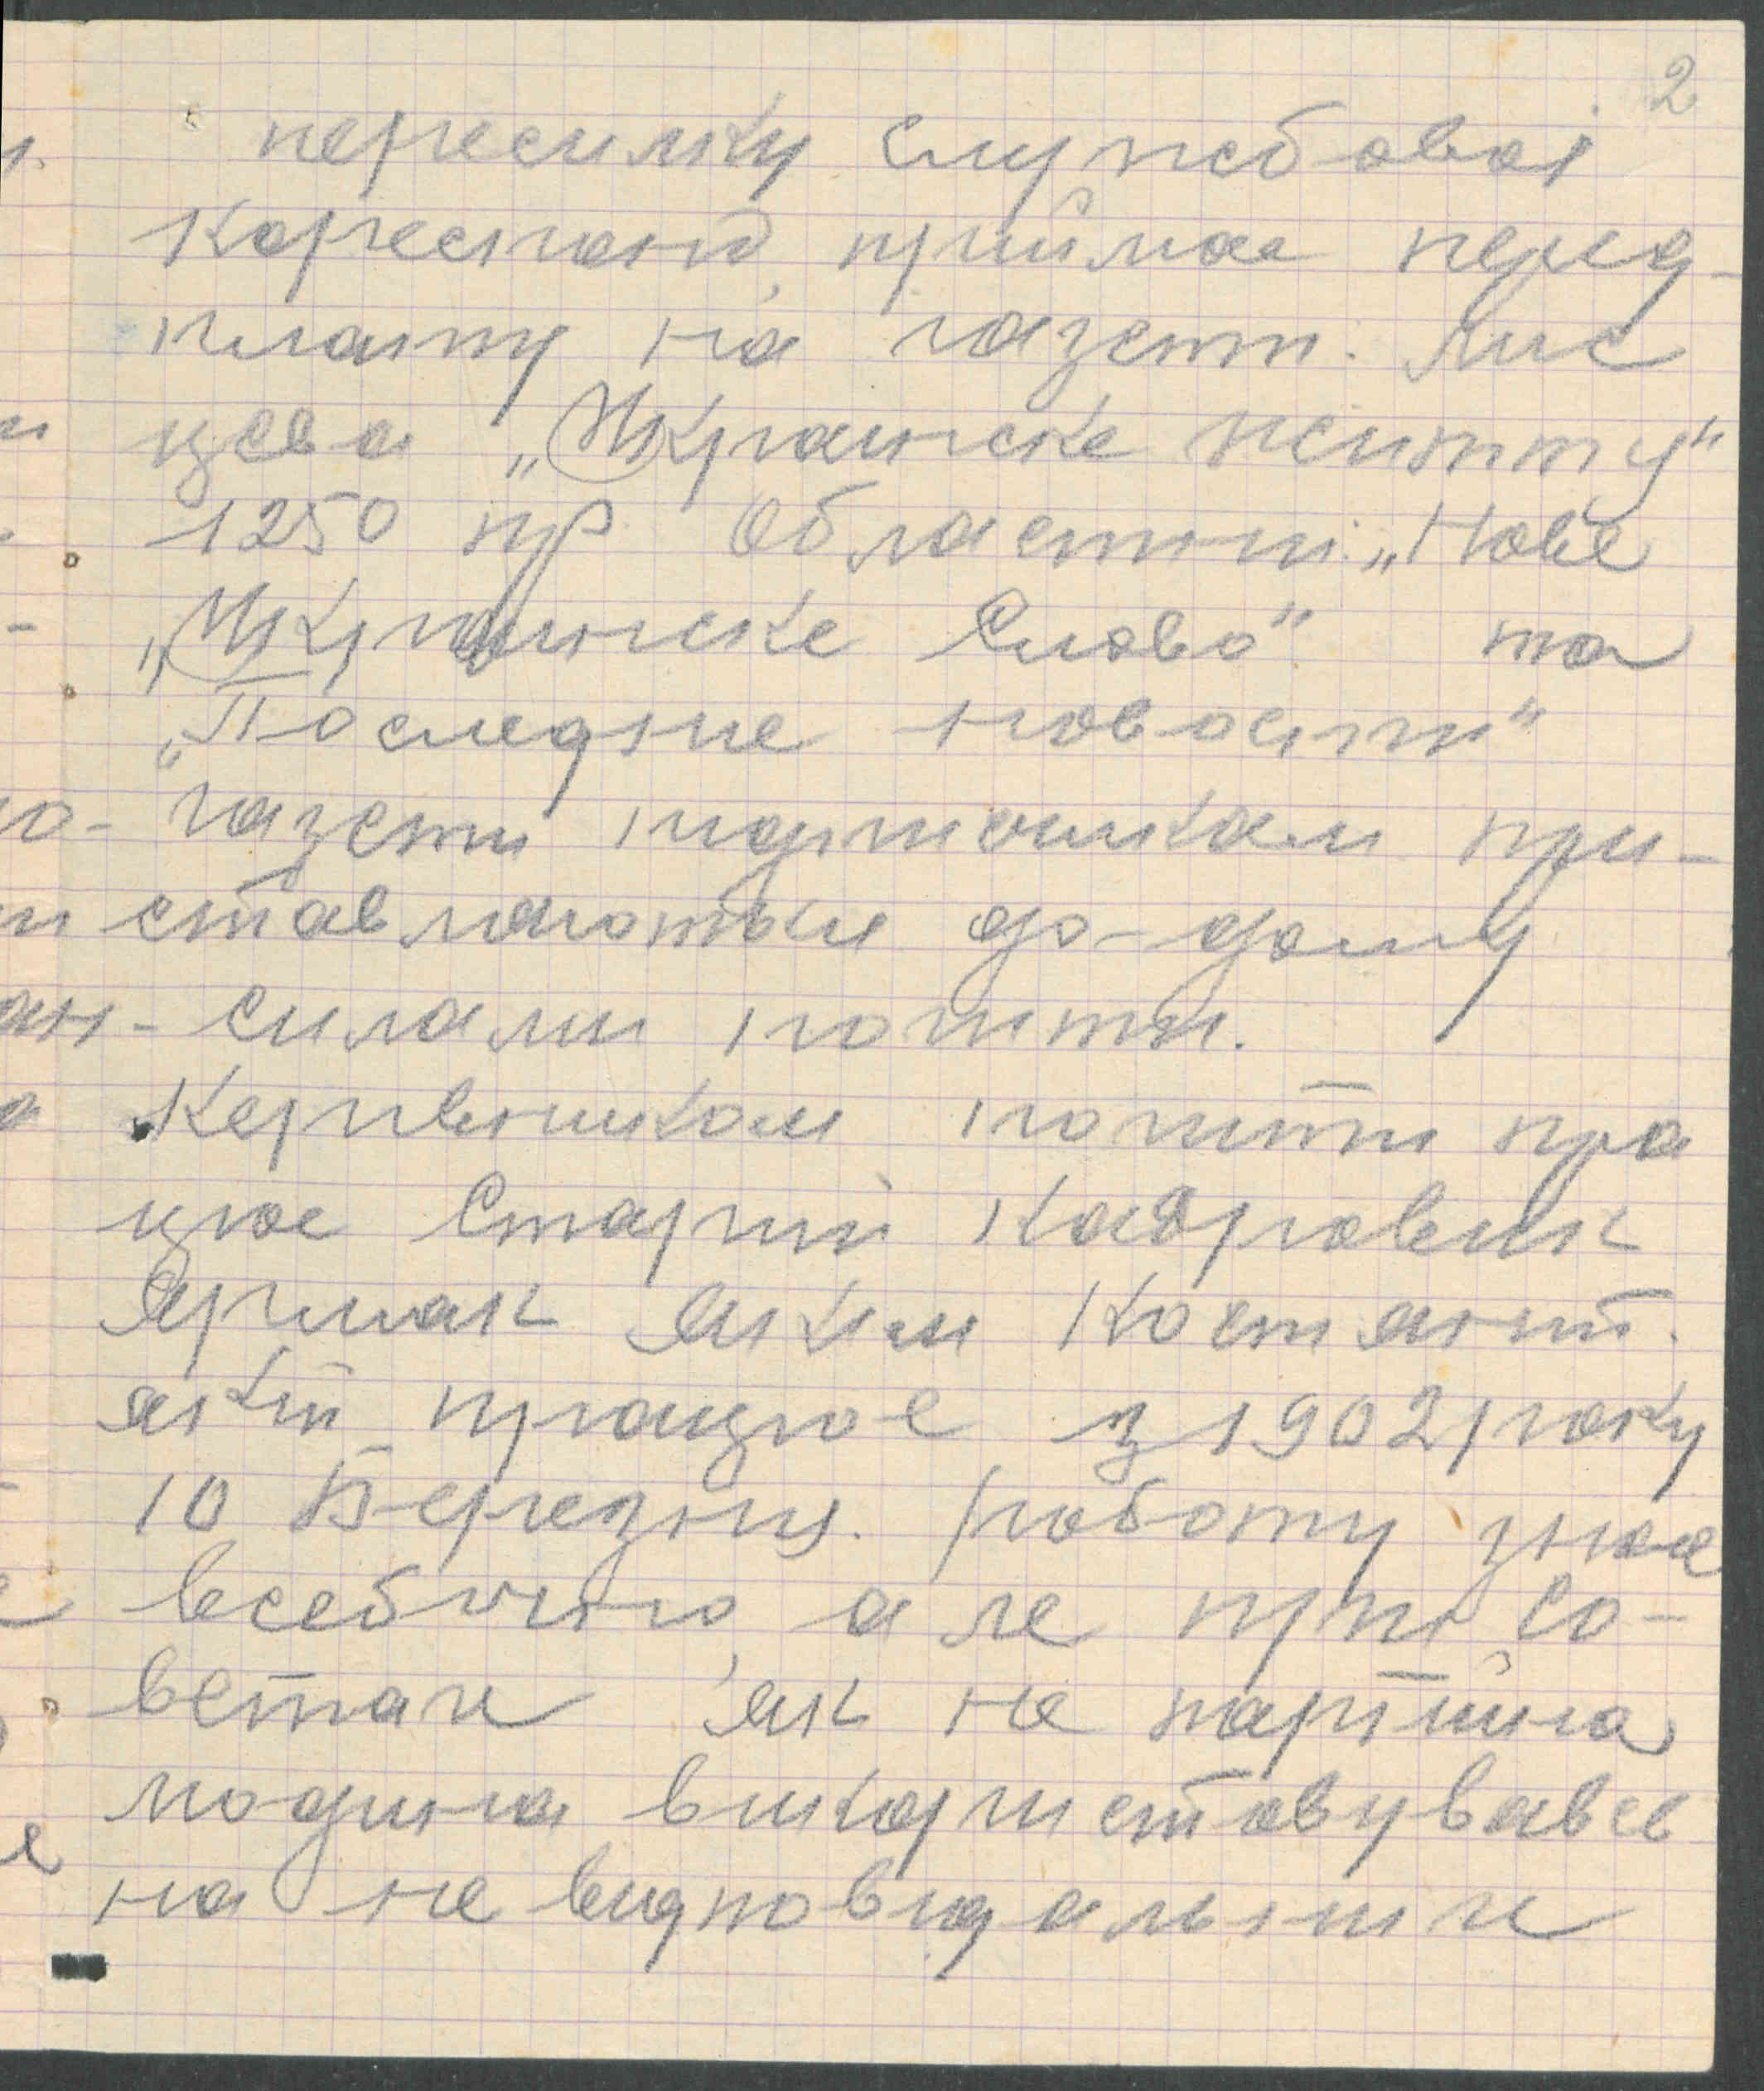 2
пересилку службовоі
кореспонд, приймае перед-
плату на газети. Міс
цева „Украинске життя"
1250 пр Обласни: „Нове
„Украинске Слово" та
„Последние новости"
газети подпісчикам при-
ставляються до-дому
силами пошти.
Керивником пошти пра
цюе Старий Кадровик
Ярмак Яким Костянт.
який працюе з 1902 року
10 Березня. роботу знае
всебично, але при со-
ветах як не партійна
людина використовувавсь
на не видповидальних